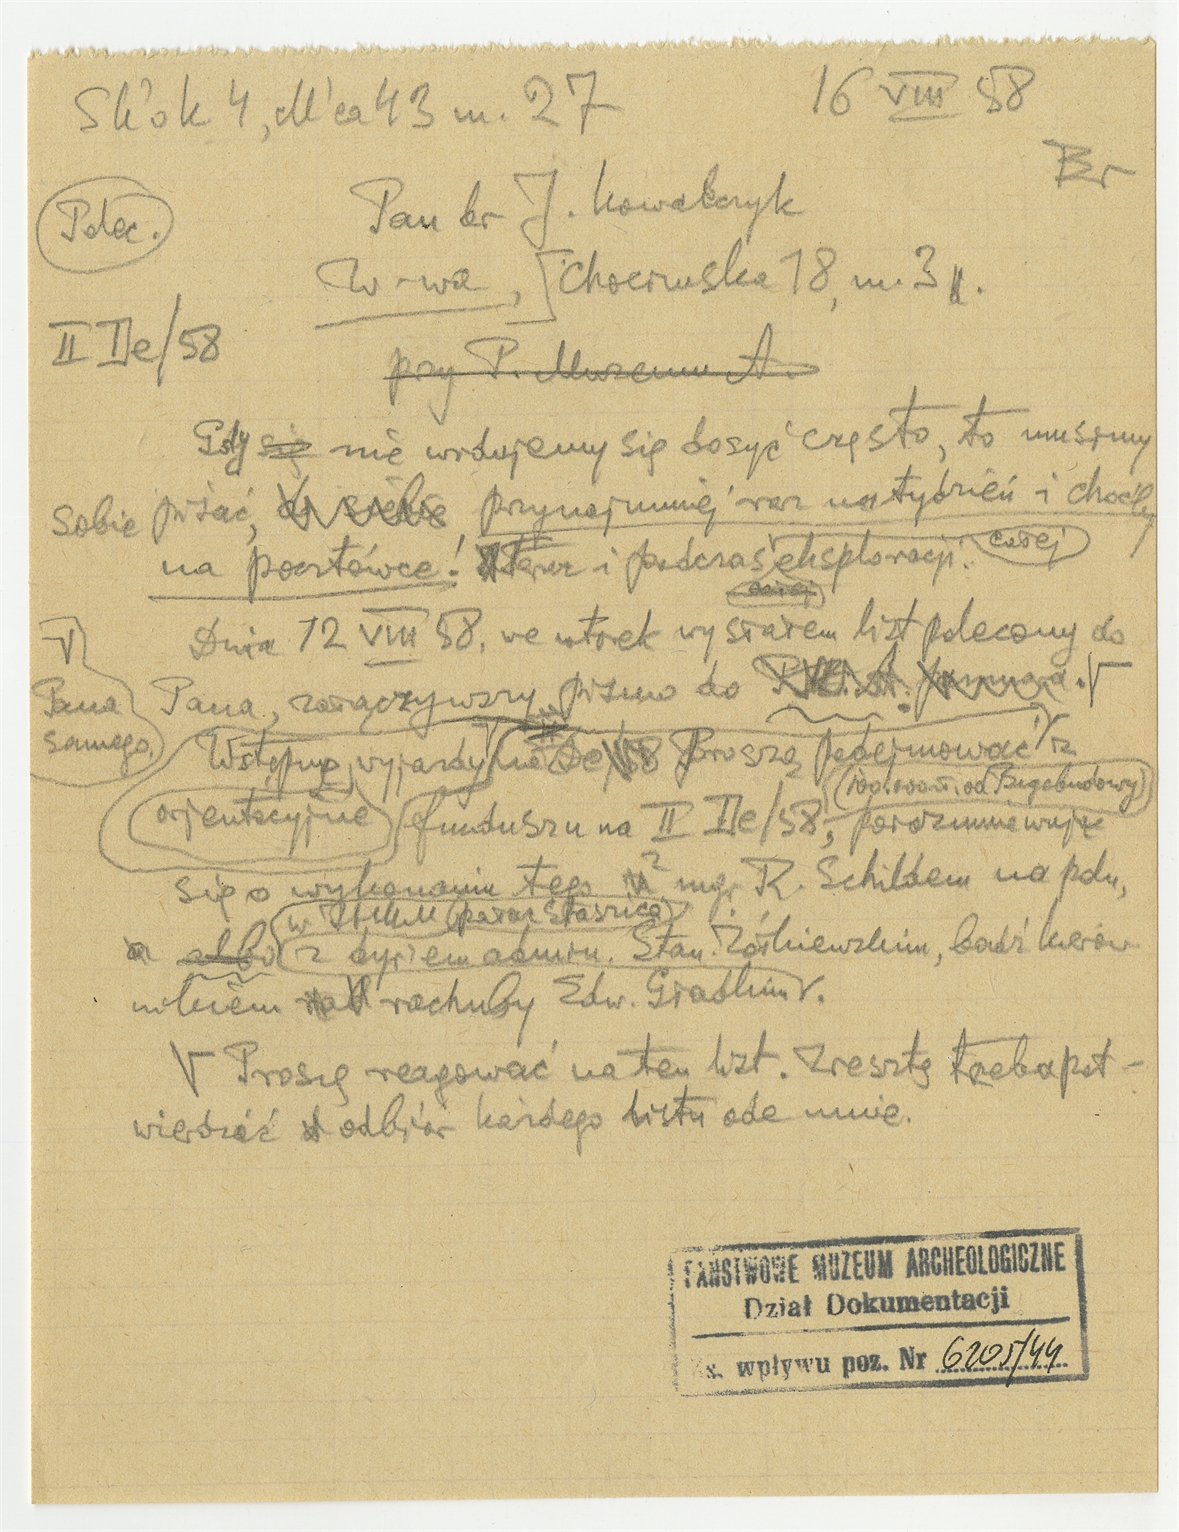 Sk'ok 4, M'ca 43 m. 27
16 VIII 58
Br
Polec.
Pan Dr J. Kowalczyk
W-wa, Chocimska 18, m. 3
II IIe/58
przy P. Muzeum A.
Gdy się nie widujemy się dosyć często, to musimy
sobie pisać, przynajmniej raz na tydzień i choćby
na pocztówce! Teraz i podczas eksploracji.
całej
Dnia 12 VIII 58. we wtorek wysłałem list polecony do
Pana, załączywszy pismo do
V
Pana
samego.
Wstępne, wyjazdy na Proszę podejmować z
orientacyjne
100.000 zł. od Biqebudowy
funduszu na II IIe/58, porozumiewając
się o wykonaniu tego z mgr. R. Schildem na pdu,
w IHKM (pałac Staszica)
a albo z dyr'em admin. Stan. Żółkiewskim, bądź kierow
nikiem rachuby Edw. Gradkim V.
V Proszę reagować na ten list. Zresztą trzeba pot-
wierdzać odbiór każdego listu ode mnie.
PAŃSTWOWE MUZEUM ARCHEOLOGICZNE
Dział Dokumentacji
Ks. wpływu poz. Nr 6205/44